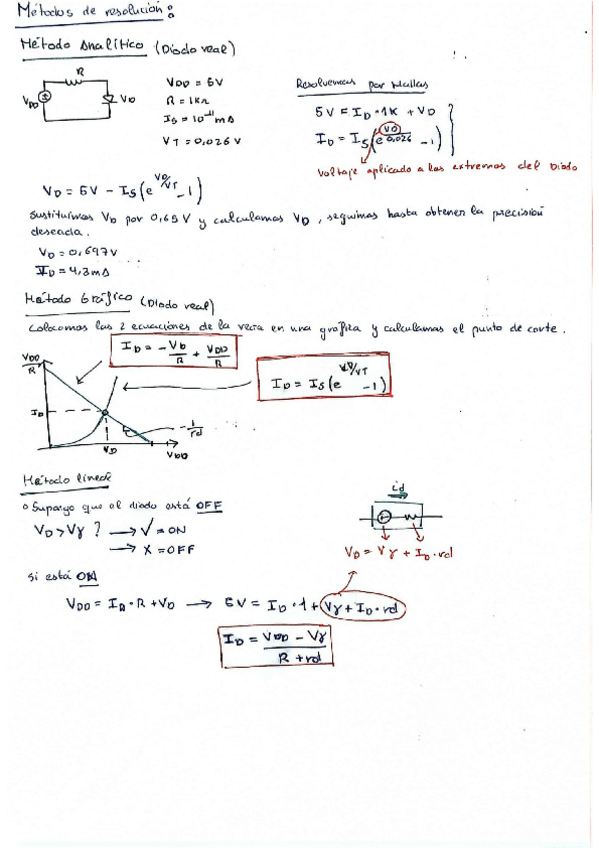 Métodos de resolución:
Método Analítico (Diodo real)
R
VDD
VD
VDD = 5V
R = 1KΩ
IS = 10^-11 mA
VT = 0,026V
Resolvemos por Mallas
5V = ID · 1K + VD
ID = IS (e^VD/0,026 - 1)
Voltaje aplicado a los extremos del Diodo
VD = 5V - IS (e^VD/VT - 1)
Sustituimos VD por 0,65V y calculamos VD, seguimos hasta obtener la precisión
deseada.
VD = 0,697V
ID = 4,3mA
Método Gráfico (Diodo real)
Colocamos las 2 ecuaciones de la recta en una gráfica y calculamos el punto de corte.
VDD/R
ID = -VD/R + VDD/R
ID = IS (e^VD/VT - 1)
ID
-1/rd
VD
VDD
Método lineal
Supongo que el diodo está OFF
VD > Vγ ? → √ = ON
→ X = OFF
id
VD = Vγ + ID · rd
Si está ON
VDD = IR · R + VD → 5V = ID · 1 + Vγ + ID · rd
ID = VDD - Vγ / R + rd